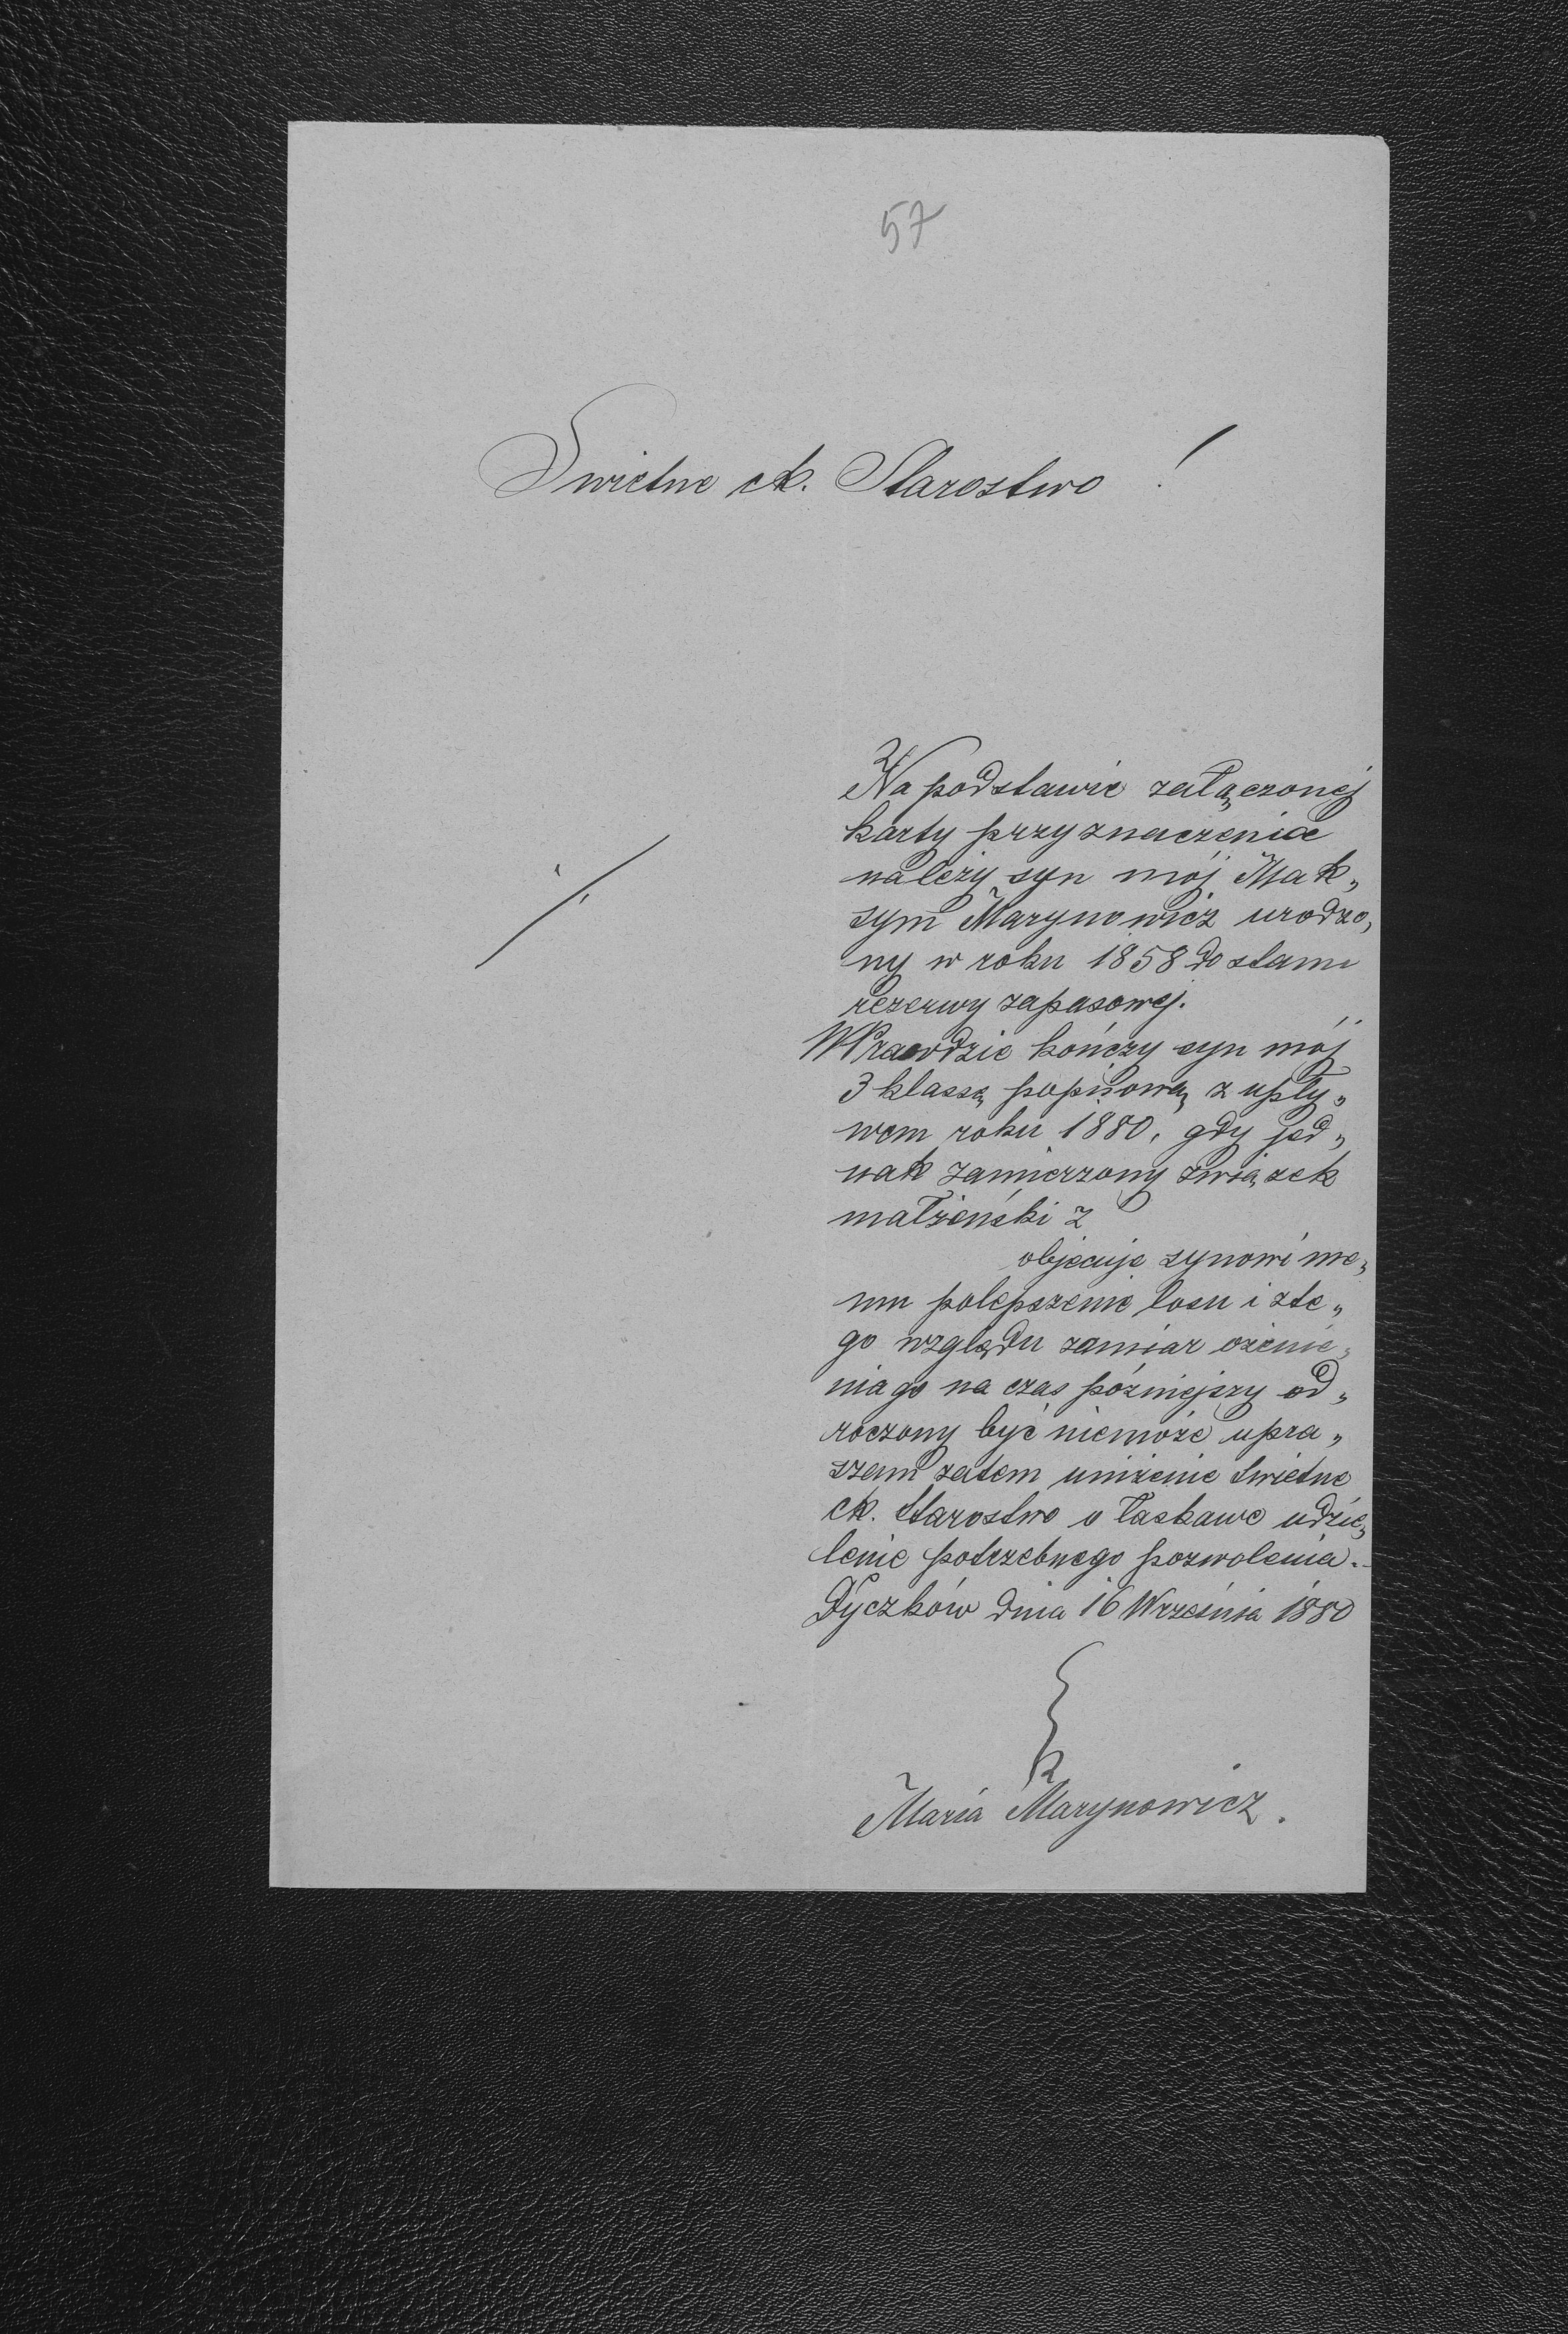 57
Swietne ck. Starostwo !
Na podstawie załączonej
karty przyznaczenia
należy syn mój Mak„
sym Marynowicz urodzo„
ny w roku 1858 do stanu
rezerwy zapasowej.
Wprawdzie kończy syn mój
3 klassę popisową z upły„
wem roku 1880, gdy jed„
nak zamierzony związek
małżeński z
objecuje synowi me„
mu polepszenie losu i zte„
go względu zamiar ożenie„
nia go na czas późniejszy od„
roczony być niemoże upra„
szam zatem uniżenie Swietne
ck. Starostwo o łaskawe udzie„
lenie potrzebnego pozwolenia.
Dyczków dnia 16 Września 1880
Maria Marynowicz.